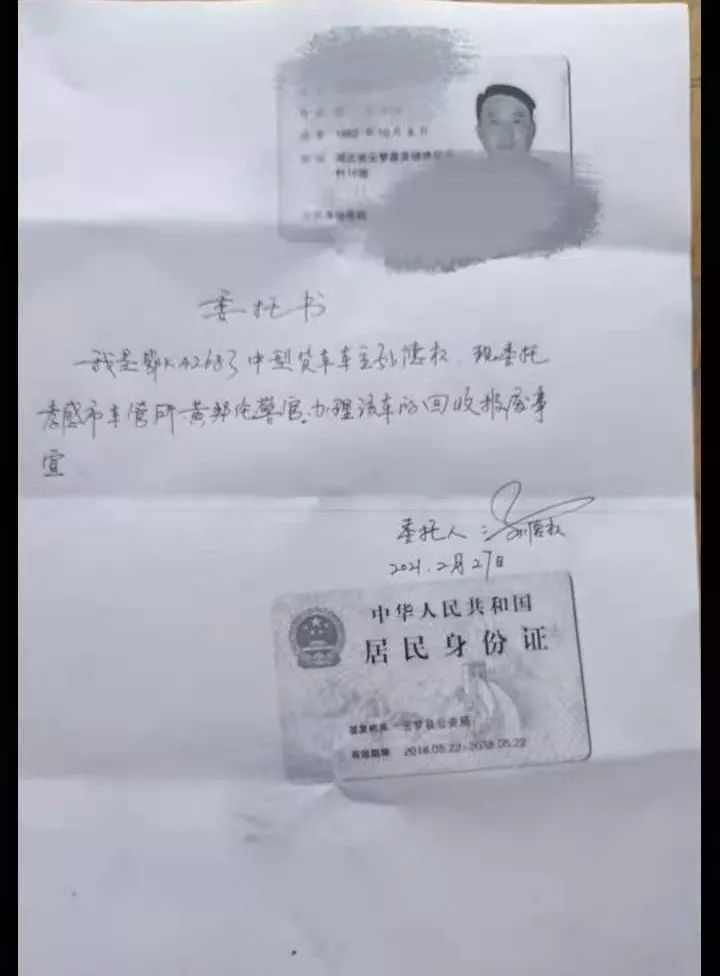 出生 1982年10月8日
住址 湖北省云梦县
村16组
公民身份号码
委托书
我是鄂K42683中型货车车主孙德权.现委托
孝感市车管所黄邦伦警官.办理该车的回收报废事
宜
委托人
2021.2月27日
中华人民共和国
居民身份证
签发机关 云梦县公安局
有效期限 2018.05.22-2038.05.22